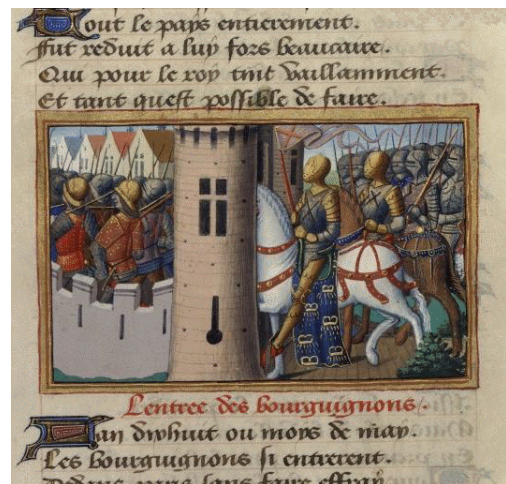 Tout le pays entierement.
Fut reduit a luy fors beaucaire.
Qui pour le roy tint vaillamment.
Et tant quest possible de faire.
Lentree des bourguignons.
Lan dixhuit ou moys de may.
Les bourguignons si entrerent.
Dedans paris sans faire effray